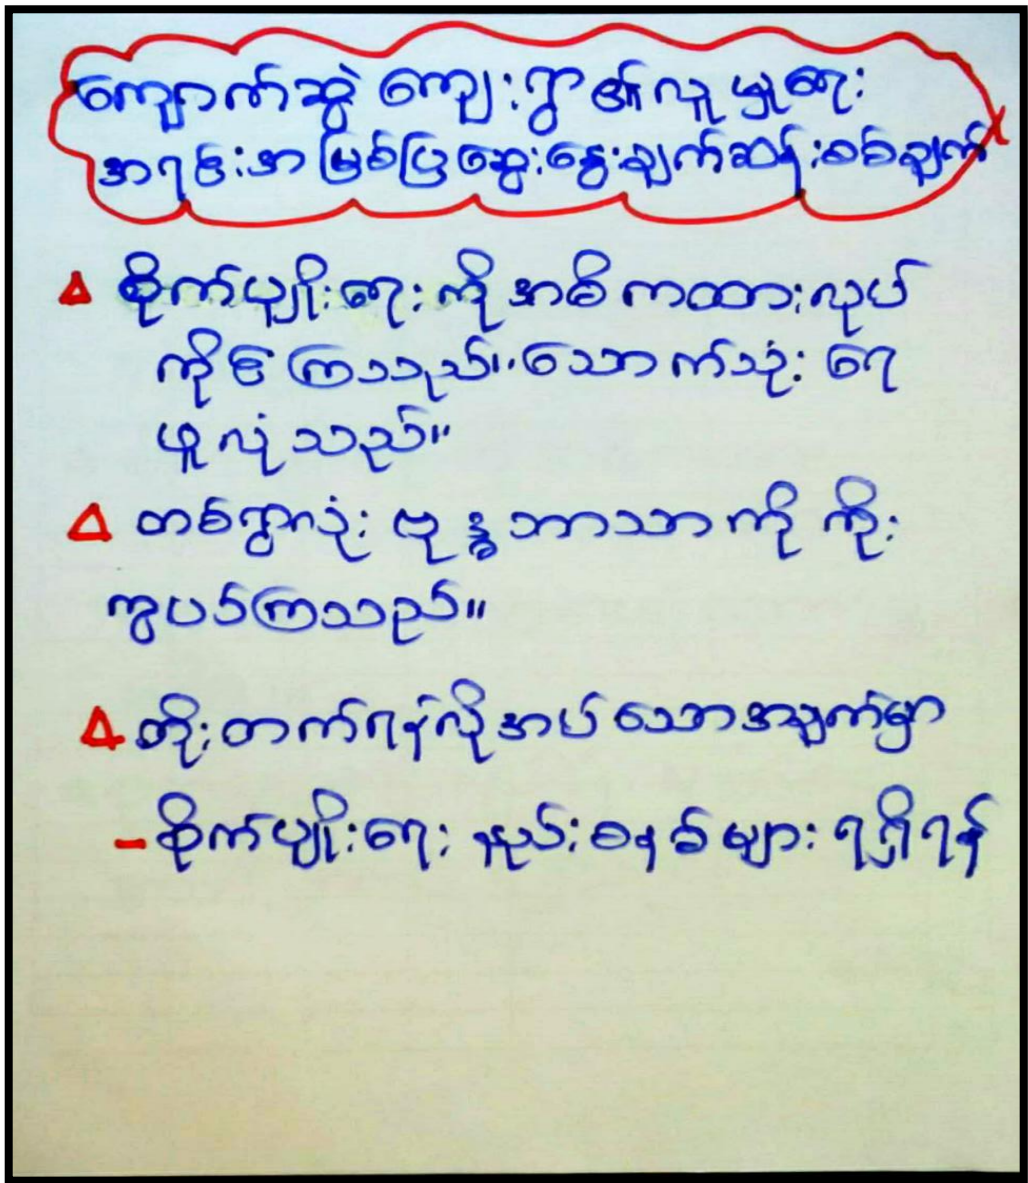 ကျောက်ဆွဲ ကျေးရွာ၏လူမှုရေး
အရင်းအမြစ်ပြ ဆွေးနွေးချက်ဆန်းစစ်ချက်
Δ စိုက်ပျိုးရေးကို အဓိကထားလုပ်
ကိုင်ကြသည်။ သောက်သုံးရေ
ဖူလုံသည်။
Δ တစ်ရွာလုံး ဗုဒ္ဓဘာသာကို ကိုး
ကွယ်ကြသည်။
Δ တိုးတက်ရန်လိုအပ်သောအချက်မှာ
- စိုက်ပျိုးရေး နည်းစနစ်များ ရရှိရန်